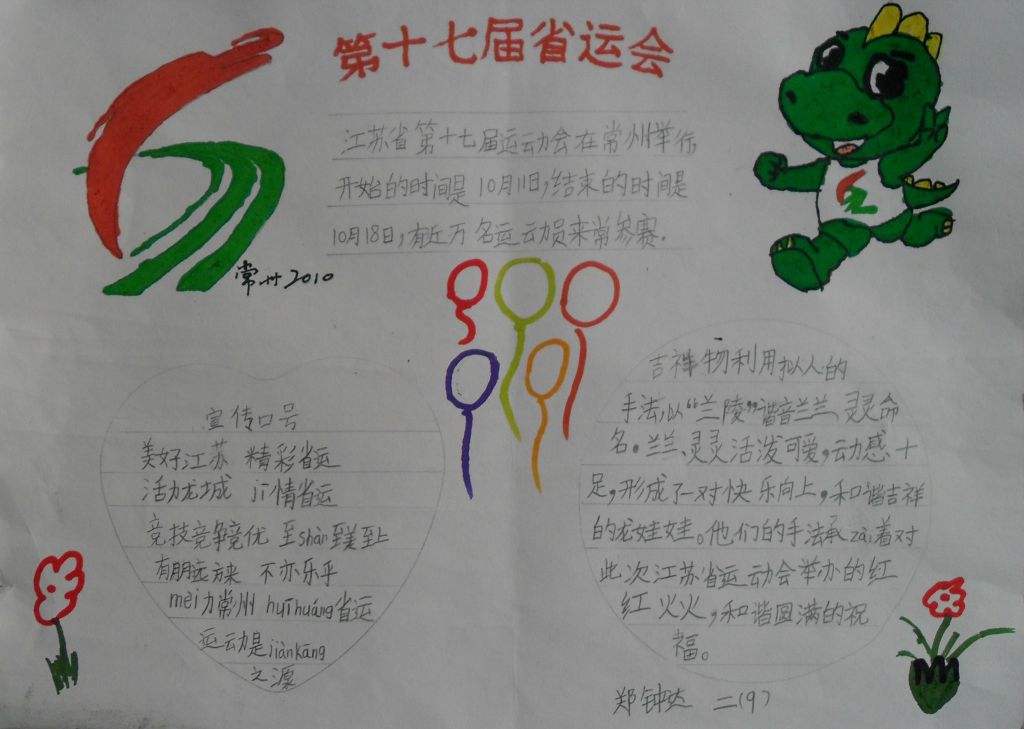 第十七届省运会
江苏省第十七届运动会在常州举行
开始的时间是10月11日,结束的时间是
10月18日,有近万名运动员来常参赛.
常州2010
宣传口号
美好江苏 精彩省运
活力龙城 jī情省运
竞技竞争竞优 至shàn至美至上
有朋远方来 不亦乐乎
mèi力常州 huīhuáng省运
运动是jiànkāng
之源
吉祥物利用拟人的
手法,以“兰陵”谐音兰兰、灵灵命
名。兰兰、灵灵活泼可爱,动感十
足,形成了一对快乐向上,和谐吉祥
的龙娃娃。他们的手法承zài着对
此次江苏省运动会举办的红
红火火,和谐圆满的祝
福。
郑钟达 二(9)